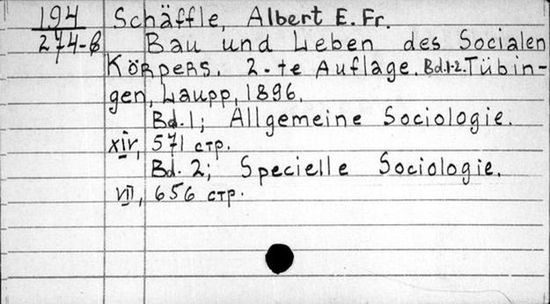 194 Schäffle, Albert E. Fr.
274-б Bau und Leben des Socialen
Körpers. 2-te Auflage. Bd.1-2. Tübin-
gen, Laupp, 1896.
Bd. 1; Allgemeine Sociologie.
xiv, 571 стр.
Bd. 2; Specielle Sociologie.
VII, 656 стр.